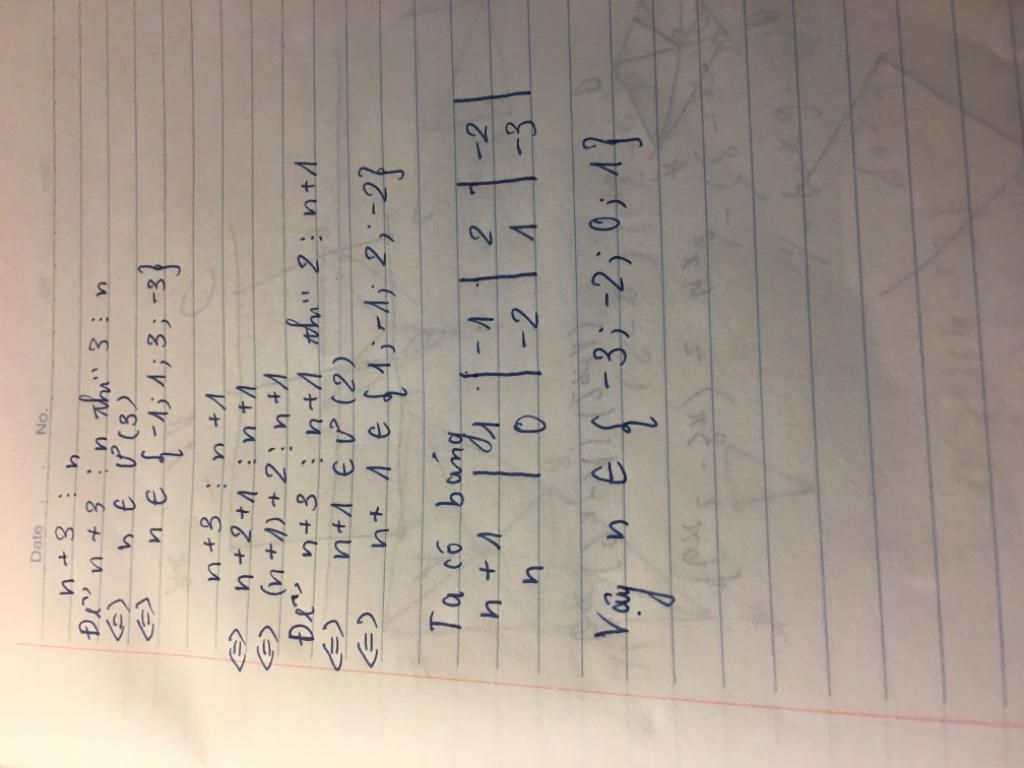 Date No.
n + 3 ⋮ n
Để n + 3 ⋮ n thì 3 ⋮ n
<=> n ∈ Ư(3)
<=> n ∈ {-1; 1; 3; -3}
n + 3 ⋮ n + 1
<=> n + 2 + 1 ⋮ n + 1
<=> (n + 1) + 2 ⋮ n + 1
Để n + 3 ⋮ n + 1 thì 2 ⋮ n + 1
<=> n + 1 ∈ Ư(2)
<=> n + 1 ∈ {1; -1; 2; -2}
Ta có bảng
n + 1 | 1 | -1 | 2 | -2 |
n | 0 | -2 | 1 | -3 |
Vậy n ∈ {-3; -2; 0; 1}